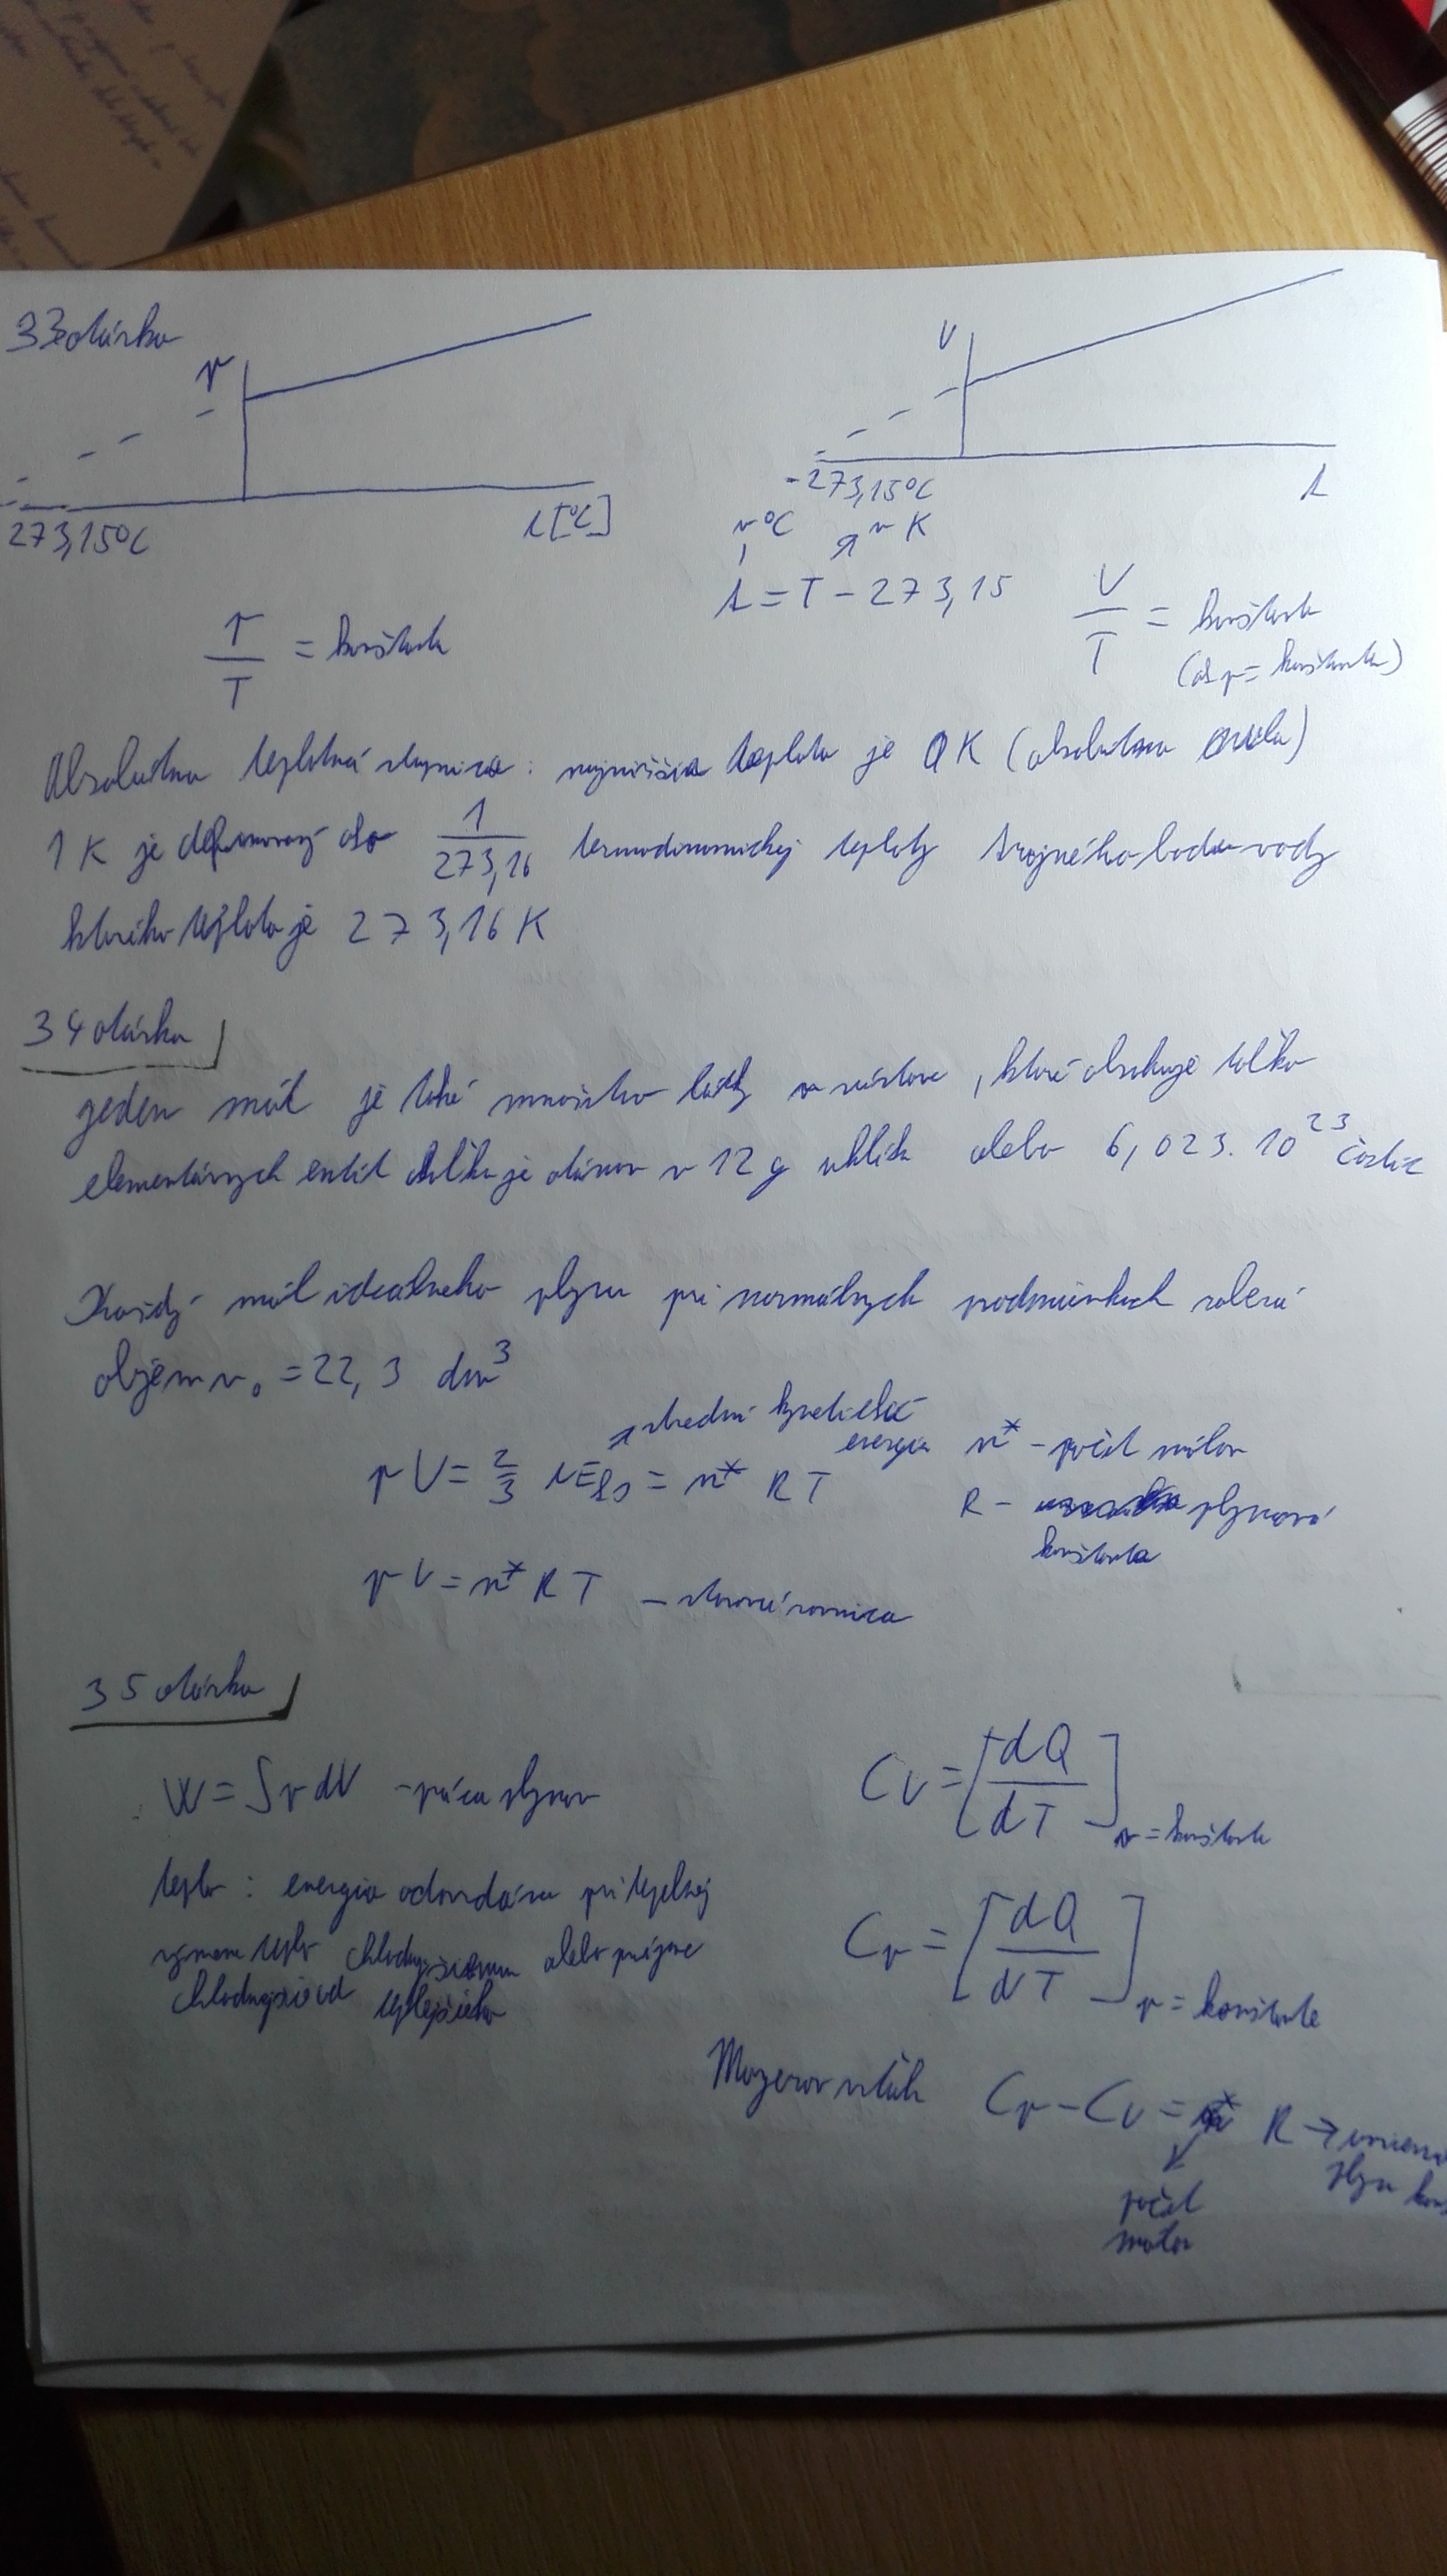 33 otázka
p
V
-273,15°C
t
273,15°C
t [°C]
v °C
v K
t = T - 273,15
p/T = konštanta
V/T = konštanta
(ak p = konštanta)
Absolútna teplotná stupnica: najnižšia teplota je 0 K (absolutna nula)
1 K je definovaný ako 1/273,16 termodinamickej teploty trojného bodu vody
ktorého teplota je 273,16 K
34 otázka
jeden mól je také množstvo látky v sústave, ktoré obsahuje toľko
elementárnych entít koľko je atómov v 12 g uhlíka alebo 6,023.10²³ častíc
Každý mól ideálneho plynu pri normálnych podmienkach zaberá
objem v₀ = 22,3 dm³
stredná kynetická
energia
n* - počet mólov
pV = 2/3 N Eks = n* R T
R - plynová
konštanta
pV = n* R T - stavová rovnica
35 otázka
W = ∫p dV - práca plynov
Cv = [dQ/dT] v = konštanta
teplo : energia odovzdána pri tepelnej
výmene teplo chladnejšiemu alebo prijme
chladnejšie od teplejšieho
Cp = [dQ/dT] p = konštanta
Mayerov vzťah Cp - Cv = n* R →
plyn
počet
molov